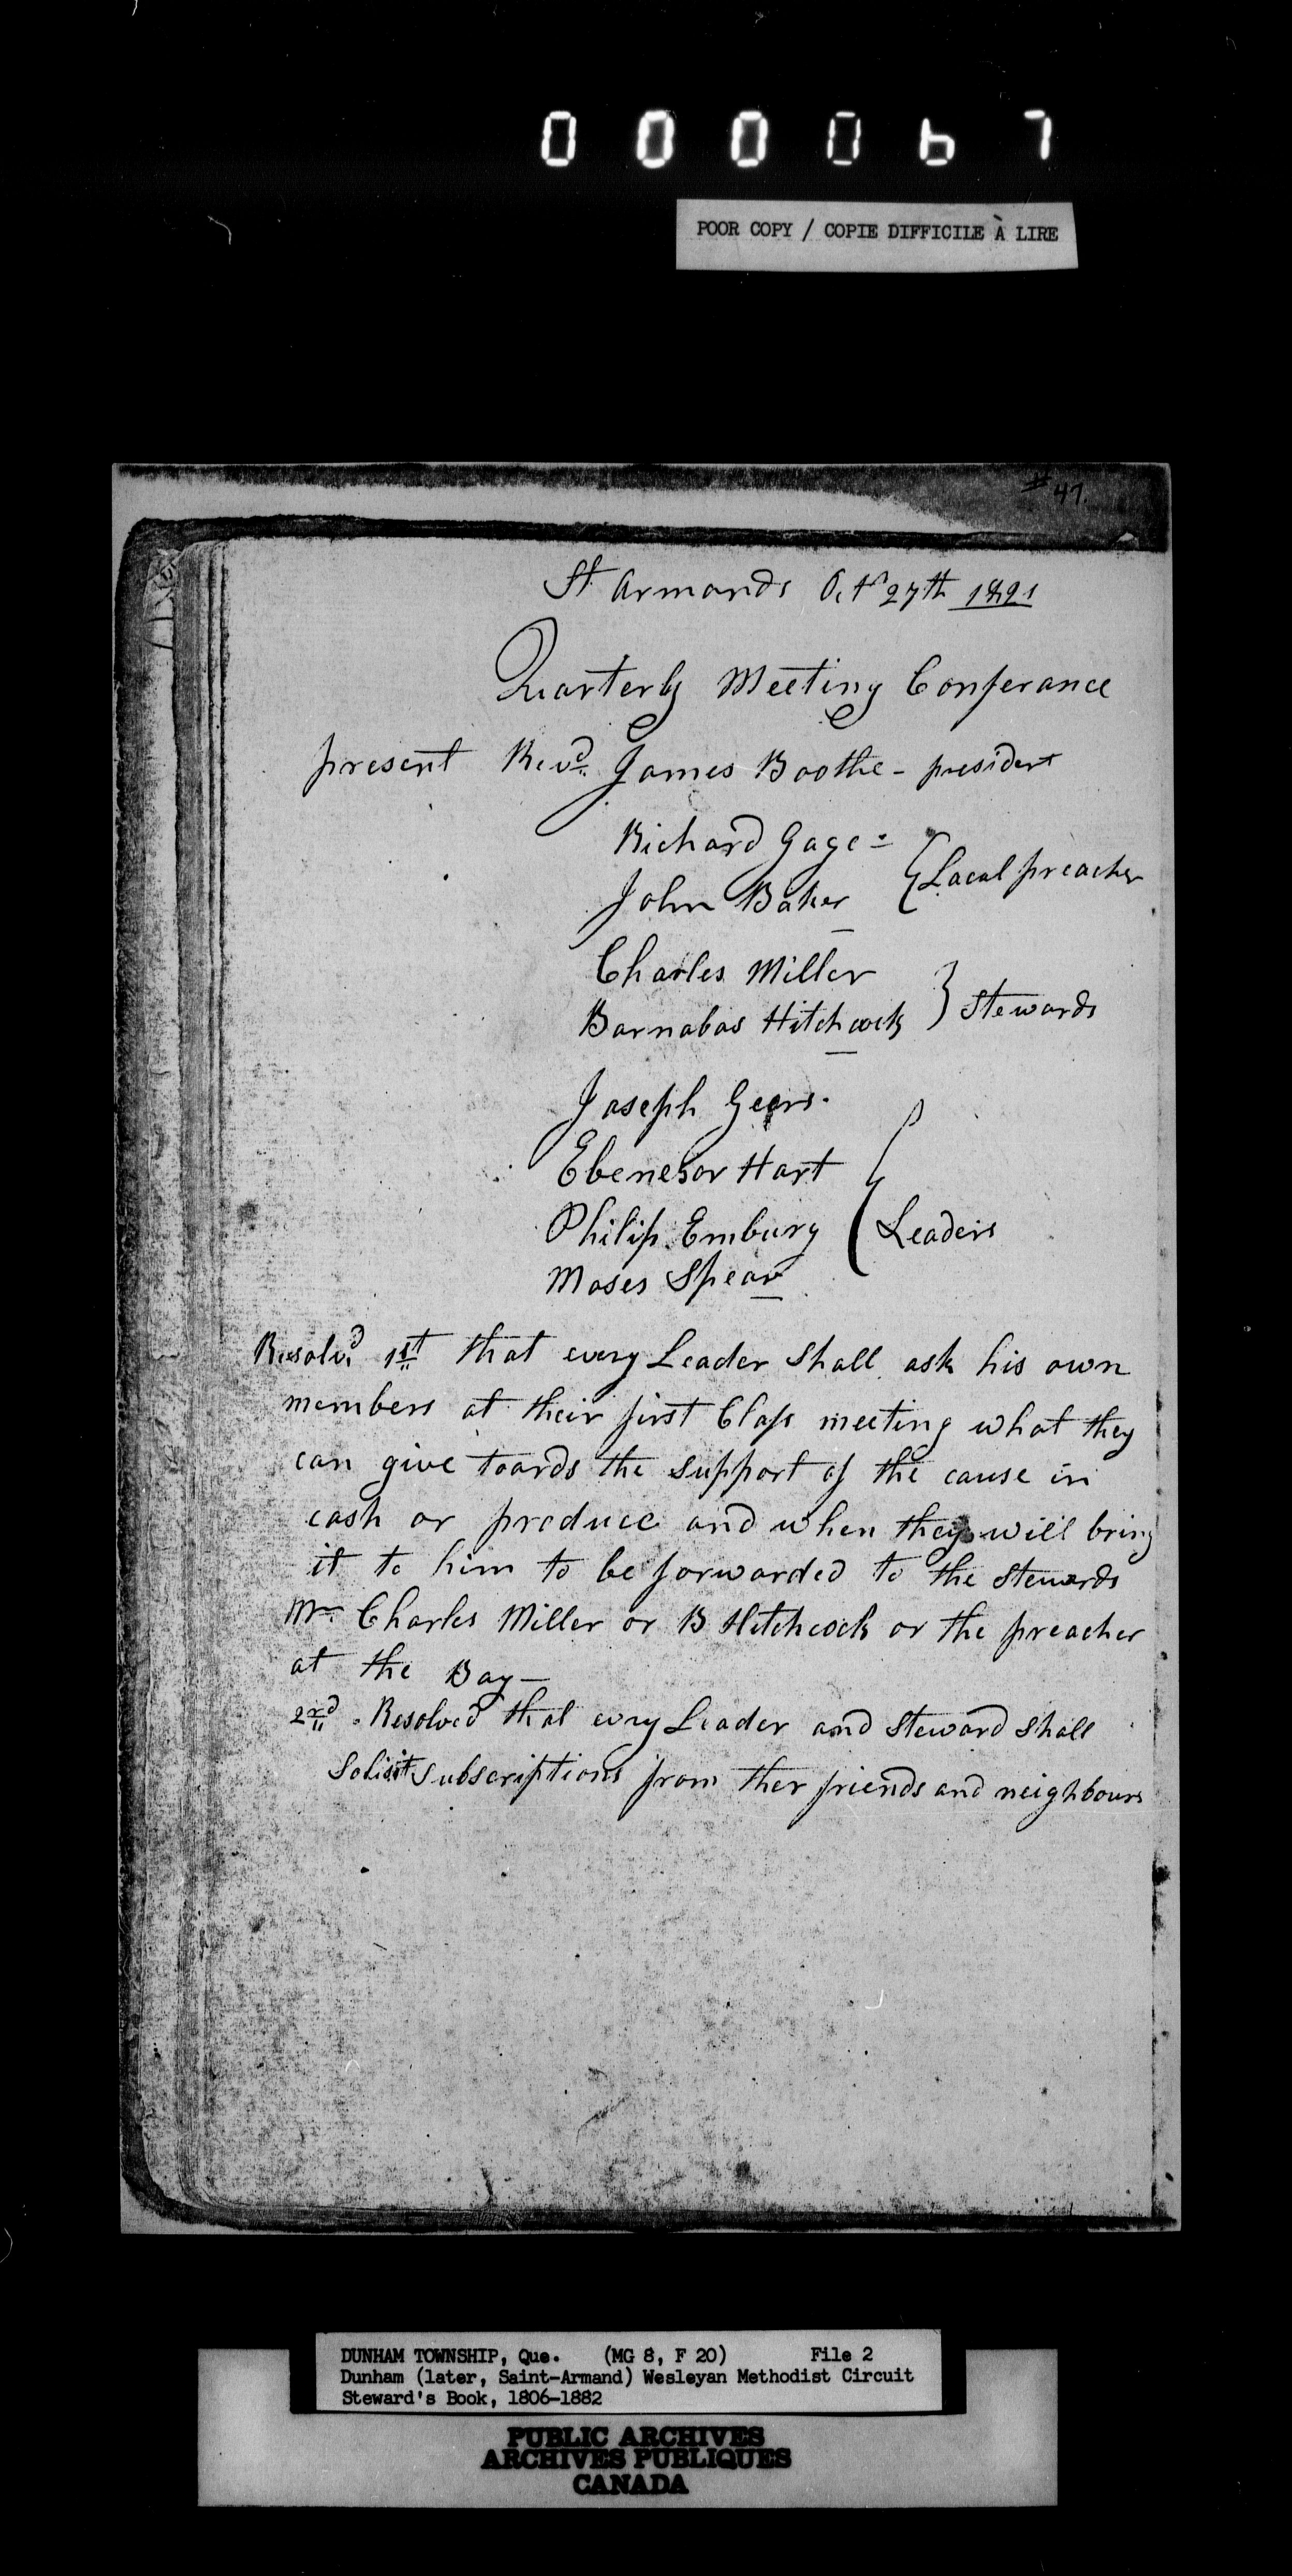 000067
POOR COPY / COPIE DIFFICILE À LIRE
# 47
St Armands Octr 27th 1821
Quarterly Meeting Conferance
present Revd James Boothe - president
Richard Gage =
John Baker { Local preacher
Charles Miller
Barnabas Hitchcock } Stewards
Joseph Geers.
Ebenesor Hart
Philip Embury { Leaders
Moses Spear
Resolvd 1st that every Leader Shall ask his own
members at their first Class meeting what they
can give toards the support of the cause in
cash or produce and when they will bring
it to him to be forwarded to the Stewards
Mr Charles Miller or B Hitchcock or the preacher
at the Bay —
2nd. Resolved that evry Leader and Steward Shall
Solisit Subscriptions from ther friends and neighbours
DUNHAM TOWNSHIP, Que. (MG 8, F 20) File 2
Dunham (later, Saint-Armand) Wesleyan Methodist Circuit
Steward's Book, 1806-1882
PUBLIC ARCHIVES
ARCHIVES PUBLIQUES
CANADA